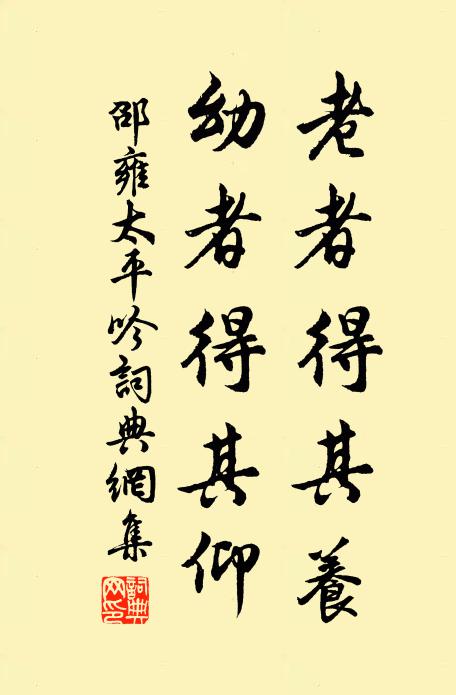 老者得其養
幼者得其仰
邵雍太平吟詞典網集
詞典
網印